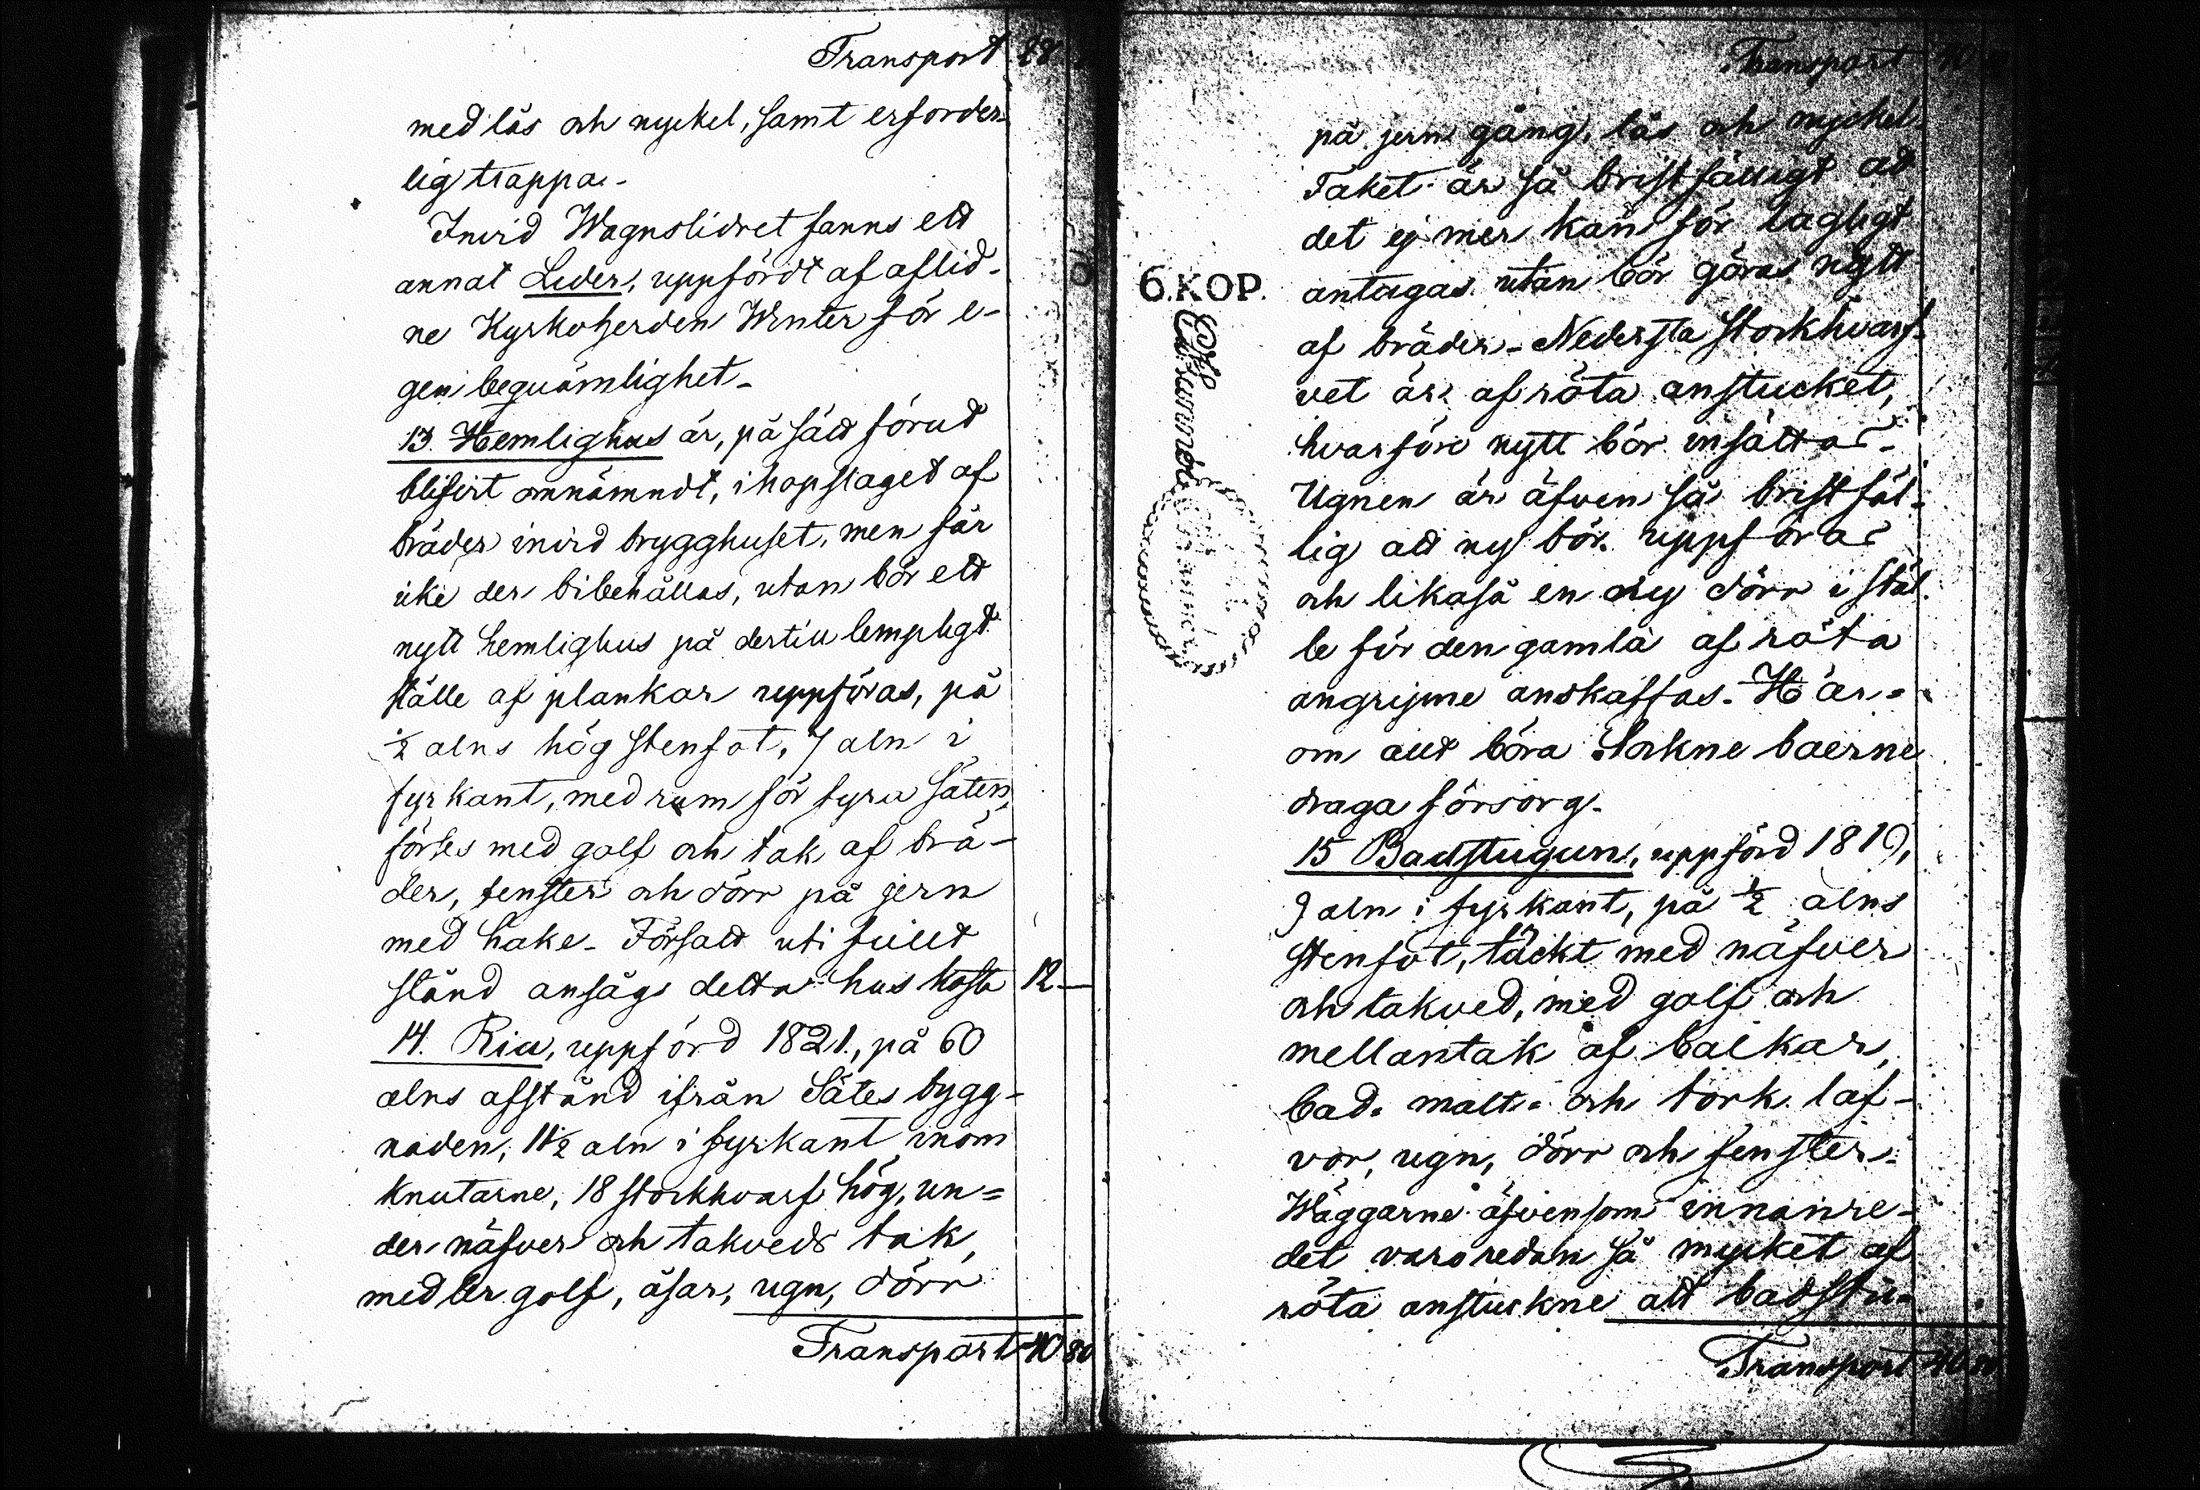 Transport 28
med lås och nyckel, samt erforder-
lig trappa.-
Invid Wagnslidret fanns ett
annat Lider, uppfördt af aflid-
ne Kyrkoherden Winter för e-
gen beqvämlighet-
13 Hemlighus är, på sätt förut
blifvit omnämndt, ihopslaget af
bräder invid brygghuset, men får
icke der bibehållas, utan bör ett
nytt hemlighus på dertill lempligt
ställe af plankar uppföras, på
½ alns hög stenfot, 7 aln i
fyrkant, med rum för fyra säten,
förses med golf och tak af brä-
der, fenster och dörr på jern
med hake- Försatt uti fullt
stånd ansågs detta hus kosta 12 -
14. Ria, uppförd 1821., på 60
alns afstånd ifrån Sätes bygg-
naden, 11½ aln i fyrkant inom
knutarne, 18 stockhvarf hög, un=
der näfver och takveds tak,
med ler golf, åsar, ugn, dörr
Transport 40 80
Transport 40
på jern gång, lås och nyckel-
Taket är så bristfälligt at
det ej mer kan för lagligt
antagas utan bör göras nytt
6.KOP.
af bräder- Nedersta stockhvarf-
vet är af röta anstucket,
hvarföre nytt bör insättas-
Ugnen är äfven så bristfäl-
lig att ny bör uppföras
och likaså en ny dörr i stäl-
le för den gamla af röta
angripne anskaffas.- Här=
om allt böra Sockne boerne
draga försorg-
15 Badstugun, uppförd 1819,
9 aln i fyrkant, på ½ alns
stenfot, täckt med näfver
och takved, med golf och
mellantak af balkar,
bad- malt- och törk laf-
var, ugn, dörr och fenster-
Wäggarne äfvensom innanre-
det voro redan så mycket af
röta anstuckne att badstu-
Transport 40 80